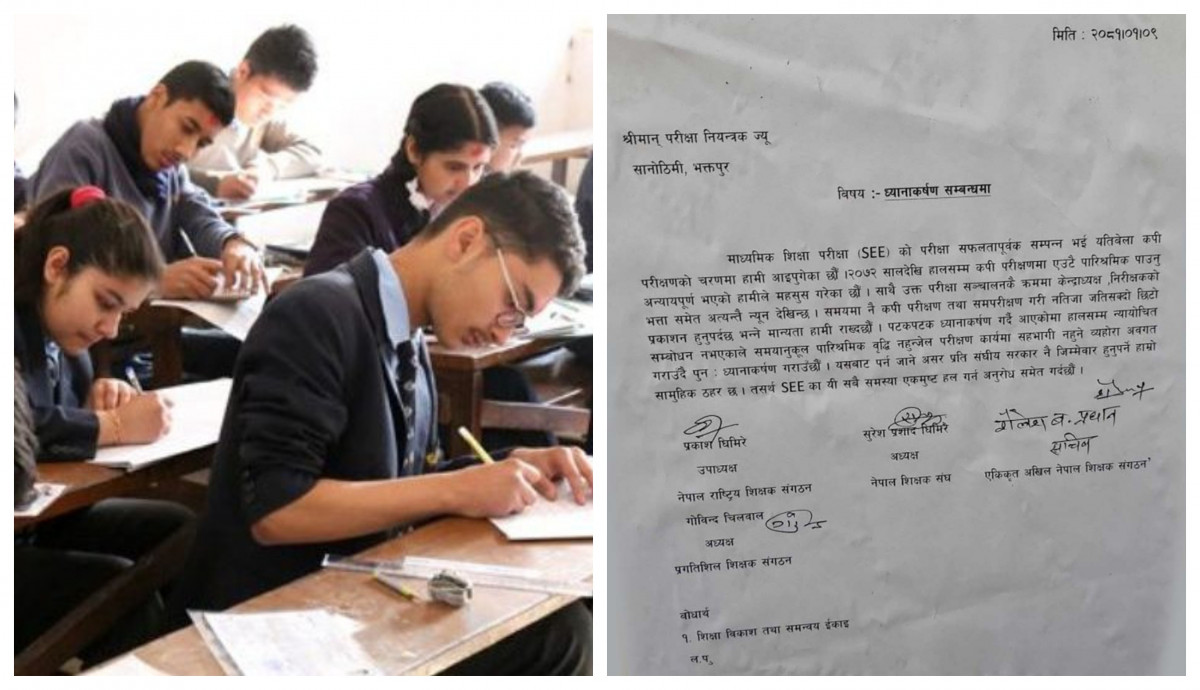 मिति : २०८१।०१।०९
श्रीमान् परीक्षा नियन्त्रक ज्यू
सानोठिमी, भक्तपुर
विषय :- ध्यानाकर्षण सम्बन्धमा
माध्यमिक शिक्षा परीक्षा (SEE) को परीक्षा सफलतापूर्वक सम्पन्न भई यतिवेला कपी
परीक्षणको चरणमा हामी आइपुगेका छौं ।२०७२ सालदेखि हालसम्म कपी परीक्षणमा एउटै पारिश्रमिक पाउनु
अन्यायपूर्ण भएको हामीले महसुस गरेका छौं । साथै उक्त परीक्षा सञ्चालनकै क्रममा केन्द्राध्यक्ष ,निरीक्षकको
भत्ता समेत अत्यन्तै न्यून देखिन्छ । समयमा नै कपी परीक्षण तथा सम्परीक्षण गरी नतिजा जतिसक्दो छिटो
प्रकाशन हुनुपर्दछ भन्ने मान्यता हामी राख्दछौं । पटकपटक ध्यानाकर्षण गर्दै आएकोमा हालसम्म न्यायोचित
सम्बोधन नभएकाले समयानुकूल पारिश्रमिक वृद्धि नहुन्जेल परीक्षण कार्यमा सहभागी नहुने व्यहोरा अवगत
गराउँदै पुन : ध्यानाकर्षण गराउँछौं । यसबाट पर्न जाने असर प्रति संघीय सरकार नै जिम्मेवार हुनुपर्ने हाम्रो
सामुहिक ठहर छ । तसर्थ SEE का यी सबै समस्या एकमुष्ट हल गर्न अनुरोध समेत गर्दछौं ।
प्रकाश घिमिरे
उपाध्यक्ष
नेपाल राष्ट्रिय शिक्षक संगठन
सुरेश प्रशाद घिमिरे
अध्यक्ष
नेपाल शिक्षक संघ
शैलेश ब. प्रधान
सचिव
एकिकृत अखिल नेपाल शिक्षक संगठन'
गोविन्द चिलवाल
अध्यक्ष
प्रगतिशिल शिक्षक संगठन
वोधार्थ
१. शिक्षा विकाश तथा समन्वय ईकाइ
ल.पु.